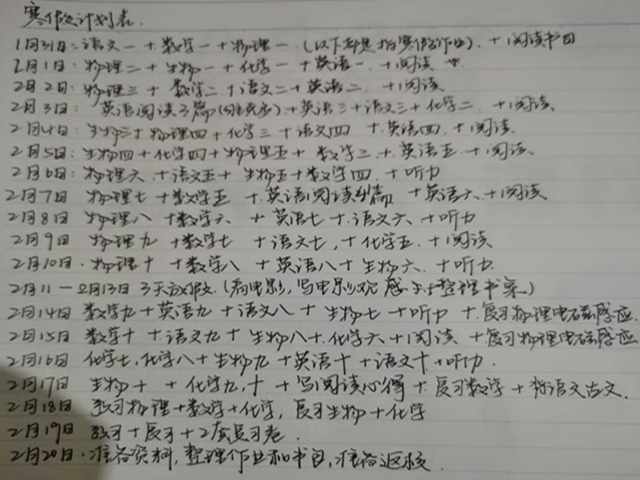 寒假计划表.
1月31日:语文一+数学一+物理一.(以下都是指寒假作业).+阅读书目
2月1日:物理二+生物一+化学一+英语一.+阅读
2月2日:物理三+数学二+语文二+英语二.+阅读.
2月3日:英语阅读3篇+英语三+语文三+化学二.+阅读.
2月4日:生物三+物理四+化学三+语文四+英语四.+阅读.
2月5日:生物四+化学四+物理五+数学三.+英语五.+阅读.
2月6日:物理六.+语文五+生物五+数学四.+听力
2月7日 物理七+数学五+英语阅读4篇+英语六.+阅读
2月8日 物理八+数学六+英语七+语文六.+听力
2月9日 物理九+数学七+语文七,+化学五.+阅读
2月10日.物理十+数学八+英语八+生物六.+听力.
2月11—2月13日 3天放假.(看电影,写电影观感+整理书桌)
2月14日 数学九+英语九+语文八+生物七+听力+复习物理电磁感应.
2月15日 数学十+语文九+生物八+化学六+阅读+复习物理电磁感应.
2月16日 化学七,化学八+生物九+英语十+语文十+听力.
2月17日 生物十+化学九,十+写阅读心得+复习数学+背语文古文.
2月18日 预习物理+数学+化学,复习生物+化学
2月19日 预习+复习+2套复习卷.
2月20日.准备资料,整理作业和书包,准备返校.